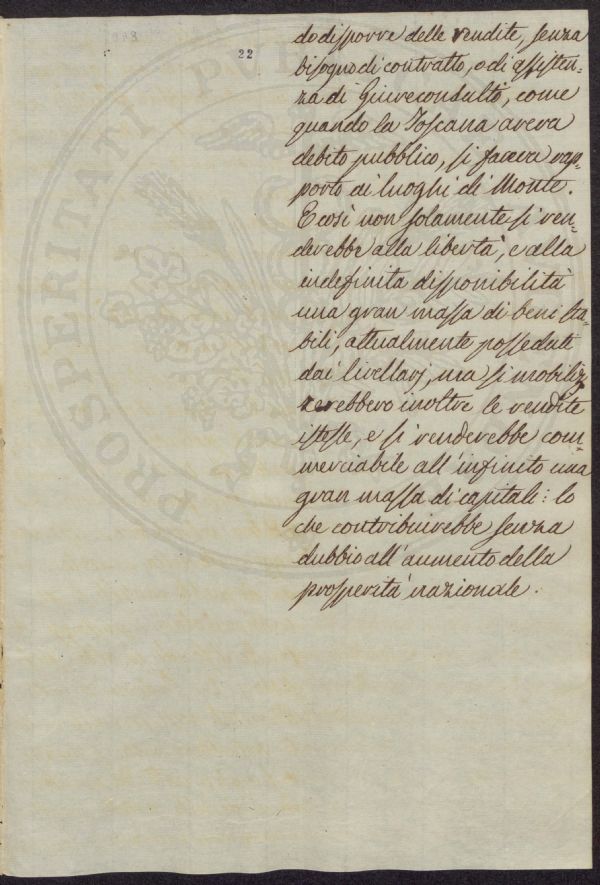 22
do disporre delle vendite, senza
bisogno di contratto, o di assisten-
za di Giureconsulto, come
quando la Toscana aveva
debito pubblico, si faceva rap-
porto ai luoghi di Monte.
E così non solamente si ren-
derebbe alla libertà, e alla
indefinita disponibilità
una gran massa di beni sta-
bili, attualmente posseduti
dai livellarj, ma si mobiliz-
zerebbero inoltre le vendite
istesse, e si renderebbe com-
merciabile all'infinito una
gran massa di capitali: lo
che contribuirebbe senza
dubbio all'aumento della
prosperità nazionale.
PROSPERITATI